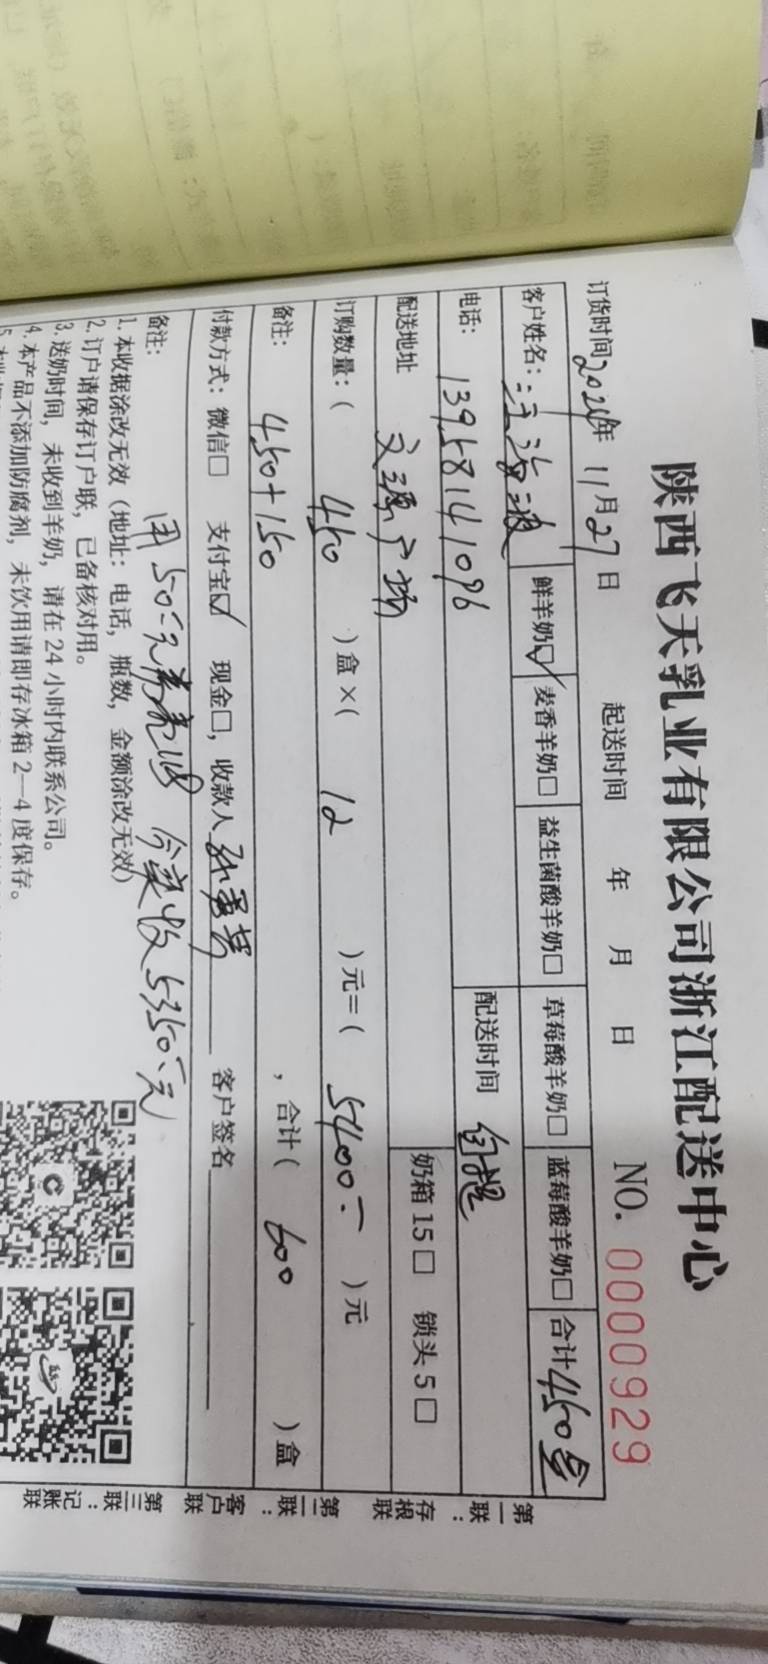 陕西飞天乳业有限公司浙江配送中心
订货时间2024年 11月27日 起送时间 年 月 日 NO. 0000929
客户姓名: 鲜羊奶☑ 麦香羊奶□ 益生菌酸羊奶□ 草莓酸羊奶□ 蓝莓酸羊奶□ 合计450盒
电话: 13958141096 配送时间 自提
配送地址 文源广场 奶箱15□ 锁头5□
订购数量:( 450 )盒×( 12 )元=( 5400.- )元
备注: 450+150 ,合计( 600 )盒
付款方式:微信□ 支付宝☑ 现金□,收款人 客户签名
备注: 用50.-元 实收5350.-元
1. 本收据涂改无效(地址:电话,瓶数,金额涂改无效)
2. 订户请保存订户联,已备核对用。
3. 送奶时间,未收到羊奶,请在24小时内联系公司。
4. 本产品不添加防腐剂,未饮用请即存冰箱2—4度保存。
第一联:存根联
第二联:客户联
第三联:记账联